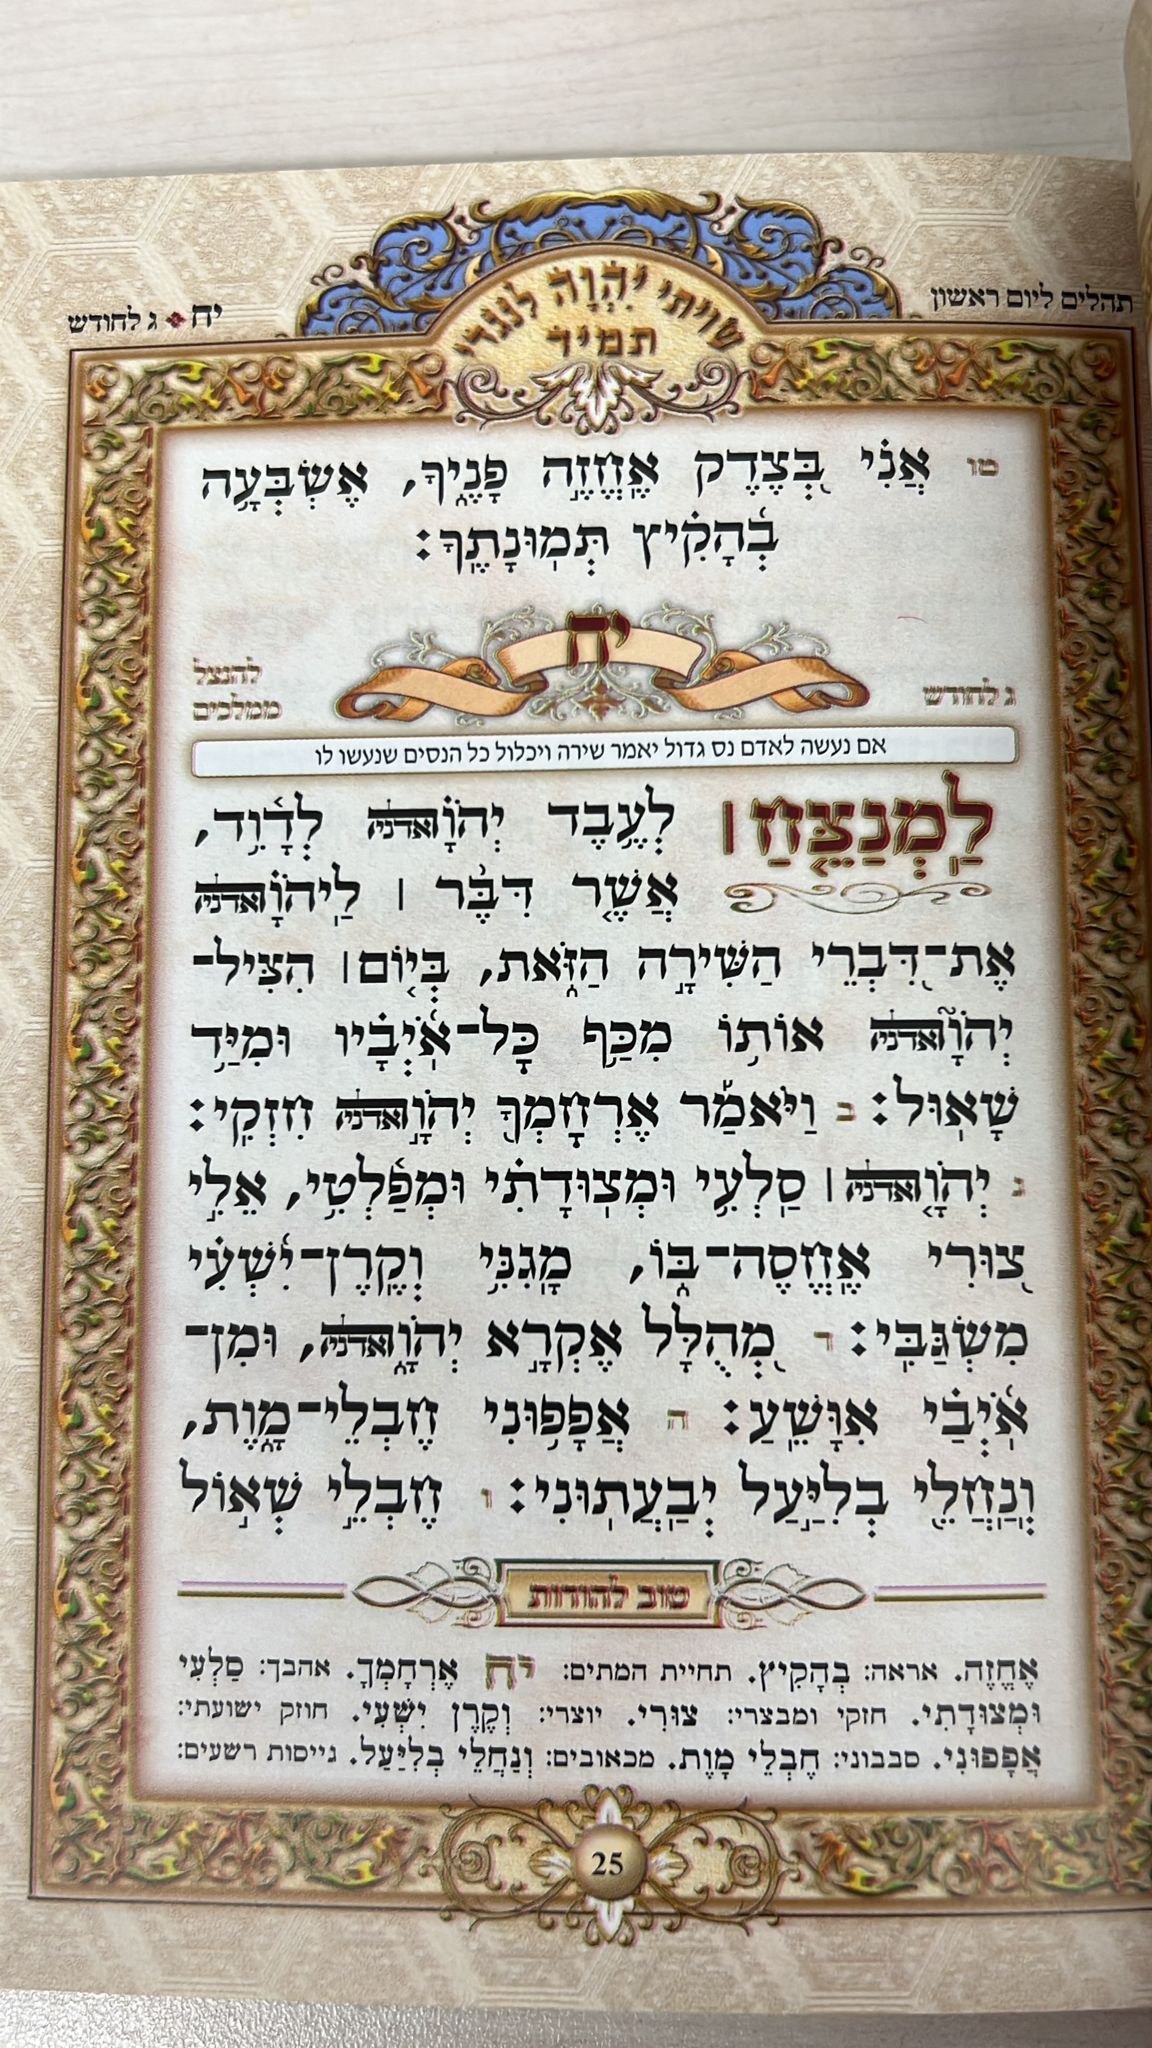 תהלים ליום ראשון
יח ג לחודש
שויתי יְהֹוָה לנגדי
תמיד
טו אֲנִ֗י בְּ֭צֶדֶק אֶחֱזֶ֣ה פָנֶ֑יךָ, אֶשְׂבְּעָ֥ה
בְ֝הָקִ֗יץ תְּמֽוּנָתֶֽךָ:
יח
להנצל
ממלכים
ג לחודש
אם נעשה לאדם נס גדול יאמר שירה ויכלול כל הנסים שנעשו לו
לַמְנַצֵּ֤חַ ׀ לְעֶ֥בֶד יְהֹוָ֗ה ואדניה לְדָ֫וִ֥ד,
אֲשֶׁ֤ר דִּבֶּ֨ר ׀ לַֽיהֹוָ֗ה ואדניה
אֶת־דִּ֭בְרֵי הַשִּׁירָ֣ה הַזֹּ֑את, בְּי֤וֹם ׀ הִצִּֽיל־
יְהֹוָ֘ה ואדניה אוֹת֥וֹ מִכַּ֥ף כׇּל־אֹ֝יְבָ֗יו וּמִיַּ֥ד
שָׁאֽוּל: ב וַיֹּאמַ֡ר אֶרְחׇמְךָ֖ יְהֹוָ֣ה ואדניה חִזְקִֽי:
ג יְהֹוָ֤ה ואדניה ׀ סַ֥לְעִ֥י וּמְצוּדָתִ֗י וּמְפַ֫לְטִ֥י, אֵלִ֣י
צ֭וּרִי אֶֽחֱסֶה־בּ֑וֹ, מָגִנִּ֥י וְקֶֽרֶן־יִ֝שְׁעִ֗י
מִשְׂגַּבִּֽי: ד מְ֭הֻלָּל אֶקְרָ֣א יְהֹוָ֑ה ואדניה, וּמִן־
אֹ֝יְבַ֗י אִוָּשֵֽׁעַ: ה אֲפָפ֥וּנִי חֶבְלֵי־מָ֑וֶת,
וְֽנַחֲלֵ֖י בְלִיַּ֣עַל יְבַֽעֲתֽוּנִי: ו חֶבְלֵ֣י שְׁא֣וֹל
טוב להודות
אֶחֱזֶה. אראה: בְהָקִיץ. תחיית המתים: יח אֶרְחָמְךָ. אהבך: סַלְעִי
וּמְצוּדָתִי. חזקי ומבצרי: צוּרִי. יוצרי: וְקֶרֶן יִשְׁעִי. חוזק ישועתי:
אֲפָפוּנִי. סבבוני: חֶבְלֵי מָוֶת. מכאובים: וְנַחֲלֵי בְלִיַּעַל. גייסות רשעים:
25